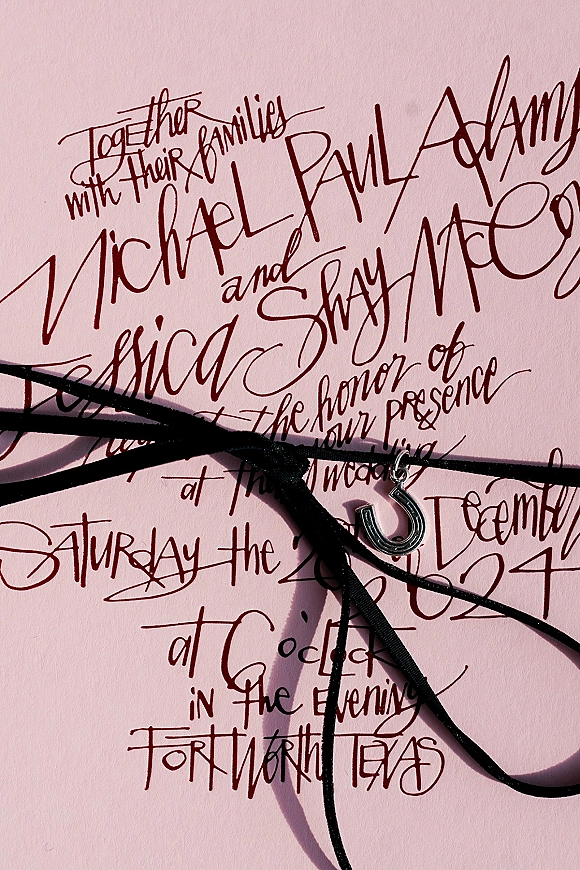 Together
with their families
Michael Paul Adams
and
Jessica Shay McCoy
the honor of
your presence
at their wedding
Saturday the December
2024
at 6 o'clock
in the evening
Fort Worth Texas